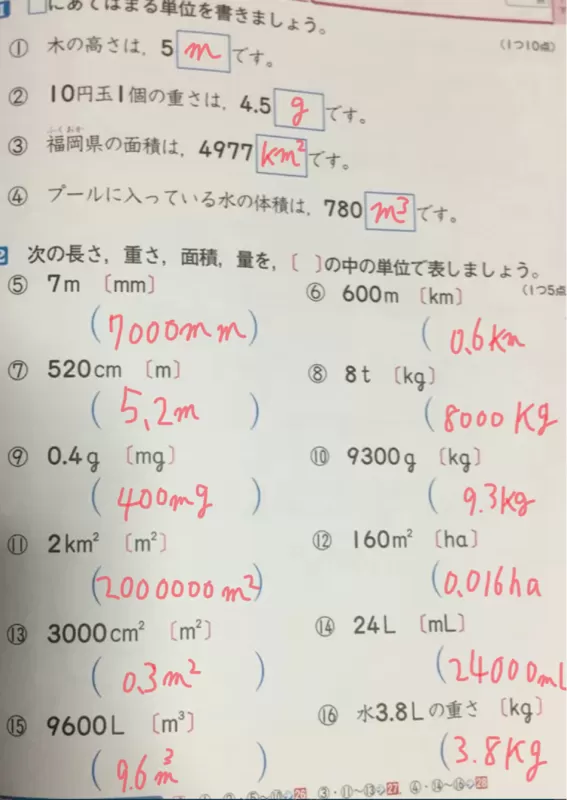 □にあてはまる単位を書きましょう。
(1つ10点)
① 木の高さは，5 m です。
② 10円玉1個の重さは，4.5 g です。
ふくおか
③ 福岡県の面積は，4977 km² です。
④ プールに入っている水の体積は，780 m³ です。
2 次の長さ，重さ，面積，量を，〔 〕の中の単位で表しましょう。
(1つ5点
⑤ 7m 〔mm〕
(7000mm)
⑥ 600m 〔km〕
(0.6km
⑦ 520cm 〔m〕
(5.2m)
⑧ 8t 〔kg〕
(8000Kg
⑨ 0.4g 〔mg〕
(400mg)
⑩ 9300g 〔kg〕
(9.3kg
⑪ 2km² 〔m²〕
(2000000m²)
⑫ 160m² 〔ha〕
(0.016ha
⑬ 3000cm² 〔m²〕
(0.3m²)
⑭ 24L 〔mL〕
(24000mL
⑮ 9600L 〔m³〕
(9.6m³)
⑯ 水3.8Lの重さ 〔kg〕
(3.8Kg